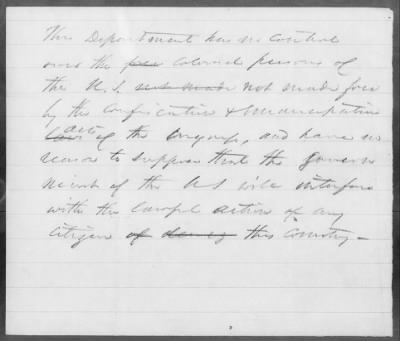 This Department has no control
over the free colored persons of
the U.S. not made not made free
by the Confiscation & Emancipation
acts of the Congress, and have no
reason to suppose that the Govern
ment of the US will interfere
with the lawful action of any
citizen of this country —